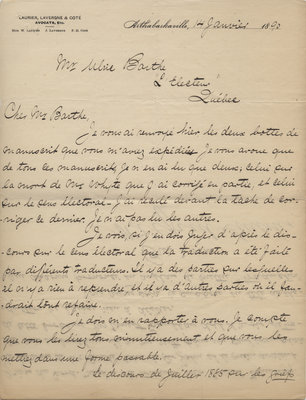 LAURIER, LAVERGNE & COTÉ
AVOCATS, Etc.
Hon. W. Laurier J. Lavergne P. H. Coté
Arthabaskaville, 14 Janvier 1890
Mr Ulric Barthe
"L'Électeur"
Québec
Cher Mr Barthe,
Je vous ai renvoyé hier les deux bottes de
manuscrit que vous m'avez expédiées. Je vous avoue que
de tous ces manuscrits, je n'en ai lu que deux; celui sur
la mort de Mr Whyte que j'ai corrigé en partie, et celui
sur le cens électoral. J'ai reculé devant la tache de cor-
riger ce dernier. Je n'ai pas lu les autres.
Je vois, si j'en dois juger d'après le dis-
cours sur le cens électoral que la traduction a été faite
par différents traducteurs. Il y a des parties sur lesquelles
il n'y a rien à reprendre, et il y a d'autres parties où il fau-
drait tout refaire.
Je dois m'en rapporter à vous. Je compte
que vous les lirez tous minutieusement, et que vous les
mettrez dans une forme passable.
Le discours de Juillet 1885 sur les